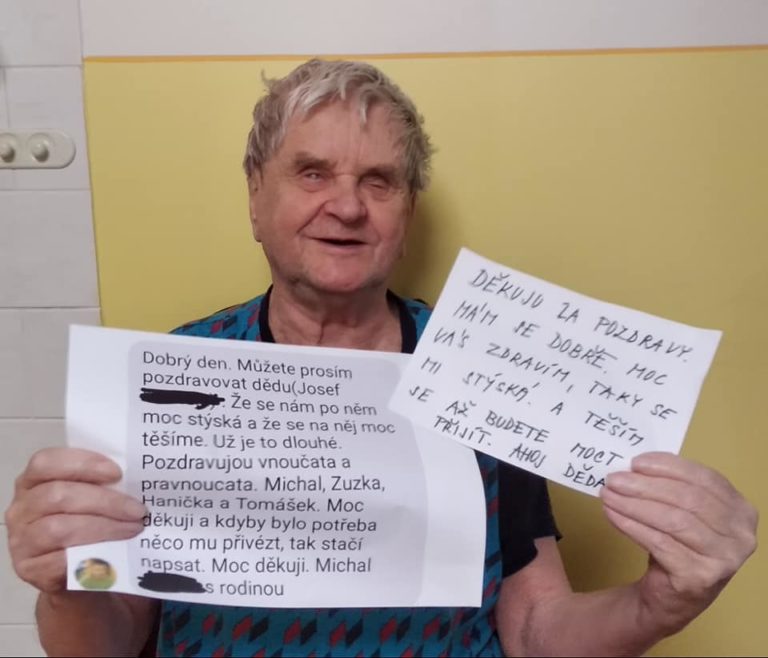 Dobrý den. Můžete prosím
pozdravovat dědu(Josef
. Že se nám po něm
moc stýská a že se na něj moc
těšíme. Už je to dlouhé.
Pozdravujou vnoučata a
pravnoucata. Michal, Zuzka,
Hanička a Tomášek. Moc
děkuji a kdyby bylo potřeba
něco mu přivézt, tak stačí
napsat. Moc děkuji. Michal
s rodinou
DĚKUJU ZA POZDRAVY.
MÁM SE DOBŘE. MOC
VÁS ZDRAVÍM, TAKY SE
MI STÝSKÁ. A TĚŠÍM
SE AŽ BUDETE MOCT
PŘIJÍT. AHOJ DĚDA